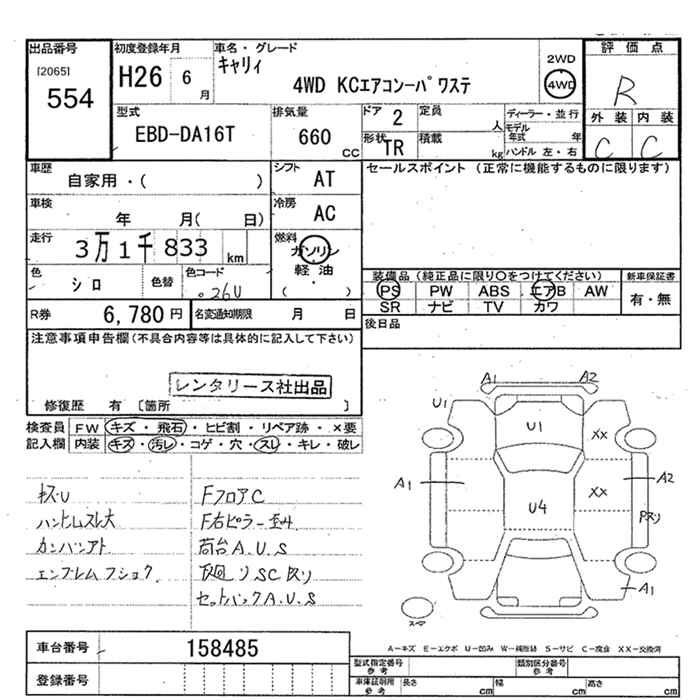 出品番号
[2065]
554
初度登録年月
H26 6 月
車名・グレード
キャリィ
4WD KCエアコン−パワステ
2WD
4WD
評価点
R
外装 内装
C C
型式
EBD-DA16T
排気量
660 CC
ドア 2
定員 人
ディーラー・並行
モデル年式 年
形状 TR
積載 kg
ハンドル 左・右
車歴
自家用・( )
シフト AT
セールスポイント (正常に機能するものに限ります)
車検
年 月( 日)
冷房 AC
走行
3万1千833 km
燃料
ガソリン
軽油
( )
色
シロ
色替
色コード
26U
装備品(純正品に限り○をつけてください)
新車保証書
PS PW ABS エアB AW
有・無
SR ナビ TV カワ
R券 6,780円
名変通知期限 月 日
後日品
注意事項申告欄(不具合内容等は具体的に記入して下さい)
レンタリース社出品
修復歴 有 [箇所 ]
検査員
記入欄
FW キズ・飛石・ヒビ割・リペア跡・×要
内装 キズ・汚レ・コゲ・穴・スレ・キレ・破レ
キズU
ハンドムスレ大
カンバンアト
エンブレムフショク
FフロアC
F右ピラー歪み
荷台A.U.S
下廻りSCスリ
セットバックA.U.S
A1 A2
U1
U1
XX
A1
A2
U4
XX
Pスリ
A1
スペア
車台番号 158485
登録番号
A−キズ E−エクボ U−凹み W−補修跡 S−サビ C−腐食 XX−交換済
型式指定番号
参考
類別区分番号
参考
車庫証明用
参考
長さ cm
幅 cm
高さ cm